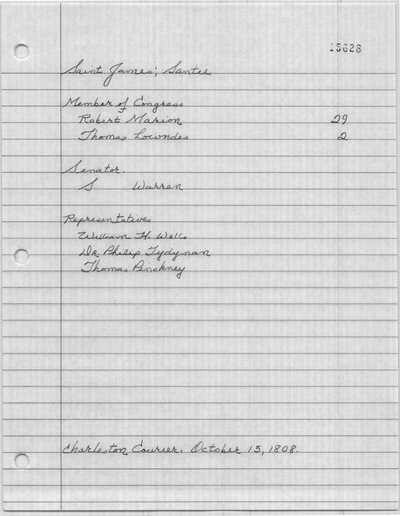 15628
Saint James; Santee
Member of Congress
Robert Marion 29
Thomas Lowndes 2
Senator.
S Warren
Representatives
William H. Wells
Dr Philip Tydyman
Thomas Pinckney
Charleston Courier. October 15, 1808.